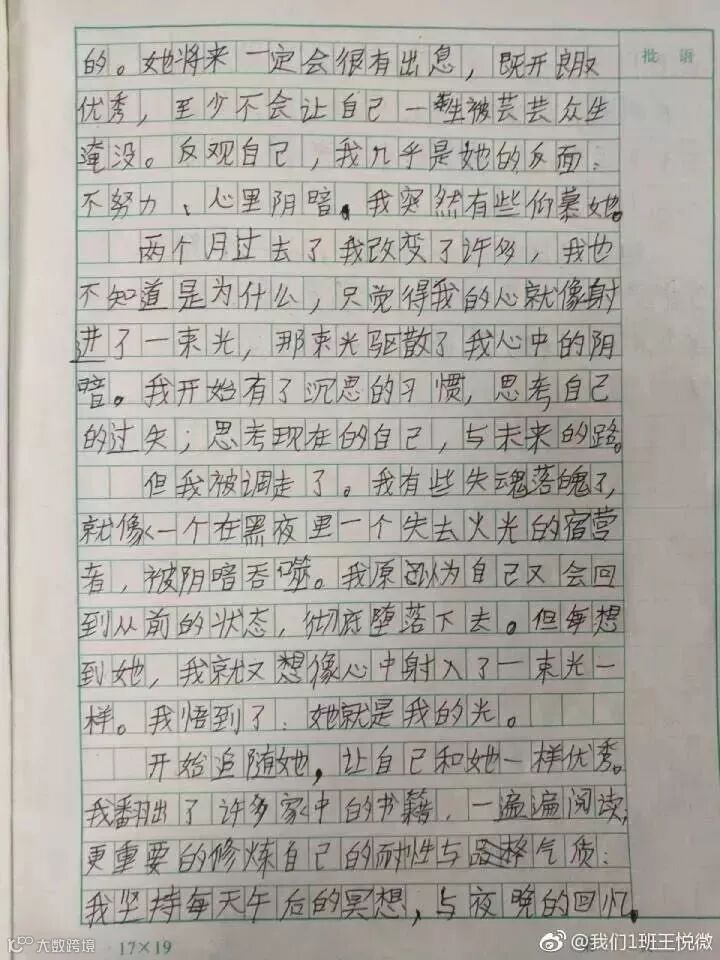 批语
的。她将来一定会很有出息，既开良取
优秀，至少不会让自己一生被芸芸众生
淹没。反观自己，我几乎是她的反面：
不努力、心里阴暗。我突然有些仰慕她。
两个月过去了我改变了许多，我也
不知道是为什么，只觉得我的心就像射
进了一束光，那束光驱散了我心中的阴
暗。我开始有了沉思的习惯，思考自己
的过失；思考现在的自己，与未来的路。
但我被调走了。我有些失魂落魄了，
就像一个在黑夜里一个失去火光的宿营
者，被阴暗吞噬。我原以为自己又会回
到从前的状态，彻底堕落下去。但每想
到她，我就又想像心中射入了一束光一
样。我悟到了：她就是我的光。
开始追随她，让自己和她一样优秀。
我翻出了许多家中的书籍，一遍遍阅读；
更重要的修炼自己的耐性与品格气质：
我坚持每天午后的冥想，与夜晚的回忆。
17×19
大数跨境
@我们1班王悦微